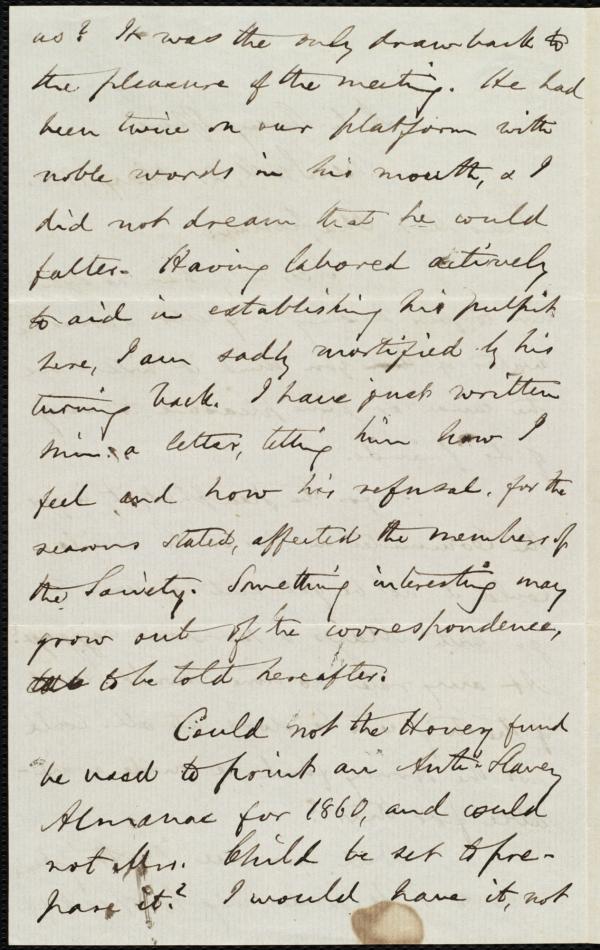 us? It was the only drawback to
the pleasure of the meeting. He had
been twice on our platform with
noble words in his mouth, & I
did not dream that he would
falter. Having labored actively
to aid in establishing his pulpit
here, I am sadly mortified by his
turning back. I have just written
him a letter, telling him how I
feel and how his refusal, for the
reasons stated, affected the members of
the Society. Something interesting may
grow out of the correspondence,
to be told hereafter.
Could not the Hovey fund
be used to print an Anti-Slavery
Almanac for 1860, and could
not Mrs. Child be set to pre-
pare it? I would have it, not